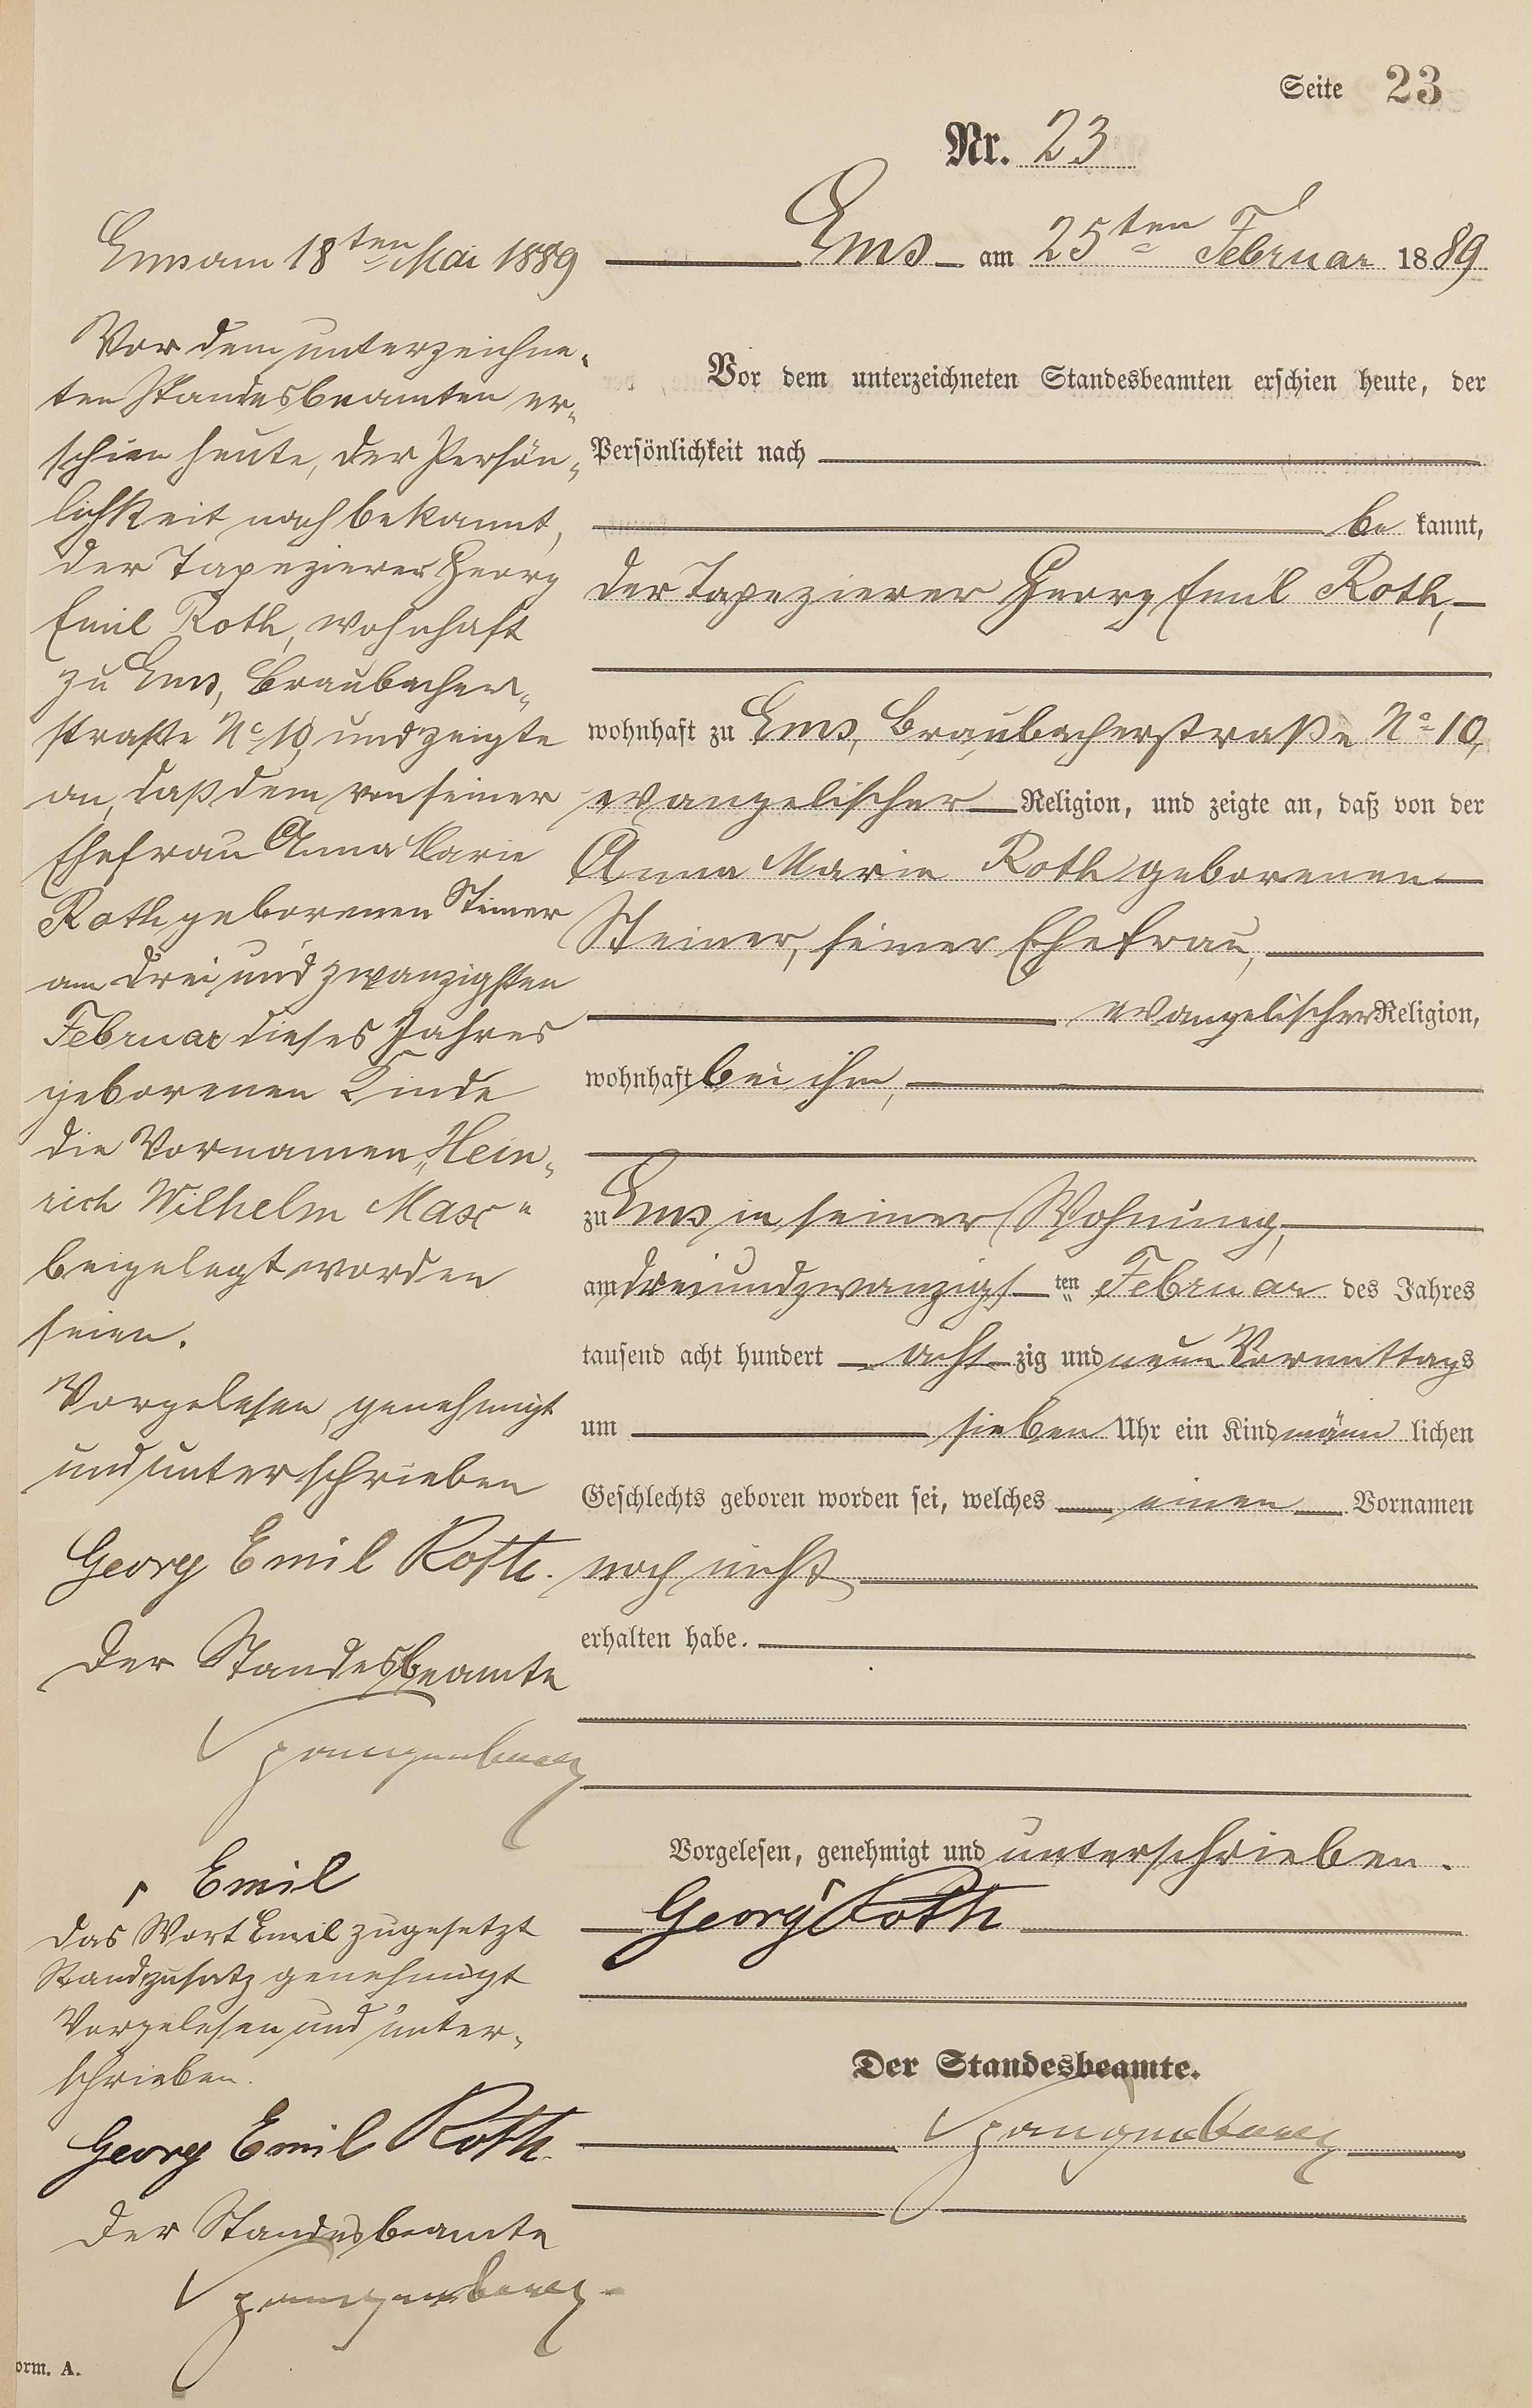 Seite 23
Nr. 23
Ems am 25ten Februar 1889
Vor dem unterzeichneten Standesbeamten erschien heute, der
Persönlichkeit nach
be kannt,
der Tapezierer Georg Emil Roth,
wohnhaft zu Ems, Braubacherstraße No 10,
evangelischer Religion, und zeigte an, daß von der
Anna Marie Roth geborenen
Steiner, seiner Ehefrau,
evangelischer Religion,
wohnhaft bei ihm,
zu Ems in seiner Wohnung,
am dreiundzwanzigsten Februar des Jahres
tausend acht hundert achtzig und neun Vormittags
um sieben Uhr ein Kind männlichen
Geschlechts geboren worden sei, welches einen Vornamen
noch nicht
erhalten habe.
Vorgelesen, genehmigt und unterschrieben.
Georg Roth
Der Standesbeamte.
Spangenberg
Ems am 18ten Mai 1889
Vor dem unterzeichne-
ten Standesbeamten er-
schien heute, der Persön-
lichkeit nach bekannt,
der Tapezierer Georg
Emil Roth, wohnhaft
zu Ems, Braubacher-
straße No 10, und zeigte
an, daß dem von seiner
Ehefrau Anna Marie
Roth geborenen Steiner
am drei und zwanzigsten
Februar dieses Jahres
geborenen Kinde
die Vornamen „Hein-
rich Wilhelm Max"
beigelegt worden
seien.
Vorgelesen, genehmigt
und unterschrieben
Georg Emil Roth.
Der Standesbeamte
Spangenberg
Emil
Das Wort Emil zugesetzt
Randzusatz genehmigt
Vorgelesen und unter-
schrieben.
Georg Emil Roth.
Der Standesbeamte
Spangenberg
orm. A.